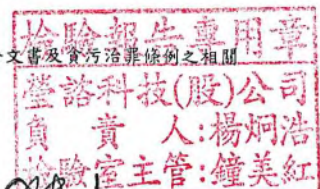 檢驗報告專用章
文書及貪污治罪條例之相關
瑩諮科技(股)公司
負責人:楊炯浩
檢驗室主管:鐘美紅